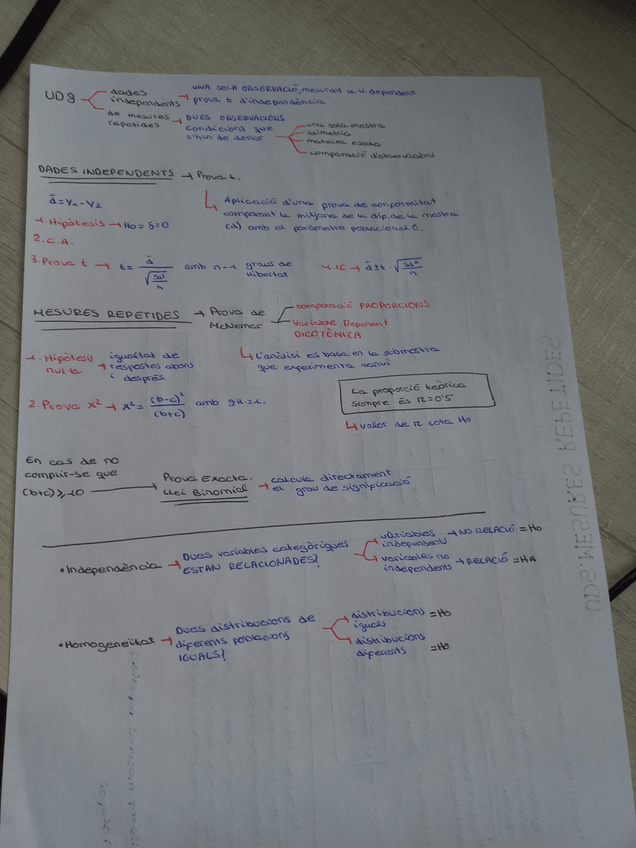 UD8
dades independents → UNA SOLA OBSERVACIÓ, mesurant la v. dependent
prova t d'independència
de mesures repetides → DUES OBSERVACIONS
condicions que s'han de donar
una sola mostra
asimetria
mateixa escala
comparació d'observacions
DADES INDEPENDENTS → Prova t.
d̄ = Y₁ - Y₂
Aplicació d'una prova de conformitat
comparant la mitjana de la dif. de la mostra
(d̄) amb el paràmetre poblacional 0.
1. Hipòtesis → H₀ = δ = 0
2. C.A.
3. Prova t → t = d̄ / √(Sd²/n) amb n-1 graus de llibertat
4. IC → d̄ ± t · √(Sd²/n)
MESURES REPETIDES → Prova de McNemar
comparació PROPORCIONS
Variable Dependent DICOTÒNICA
L'anàlisi es basa en la submostra
que experimenta canvi
1. Hipòtesi nul·la → igualtat de respostes abans i després.
2. Prova X² → X² = (b-c)² / (b+c) amb g.ll.=1.
La proporció teòrica
sempre és π=0'5
valor de π sota H₀
En cas de no
complir-se que
(b+c) ≥ 10 → Prova Exacta.
Llei Binomial → calcula directament
el grau de significació
• Independència → Dues variables categòriques
ESTAN RELACIONADES?
variables independents → NO RELACIÓ = H₀
variables no independents → RELACIÓ = HA
• Homogeneïtat → Dues distribucions de
diferents poblacions
IGUALS?
distribucions iguals = H₀
distribucions diferents = H₀
UD8 MESURES REPETIDES